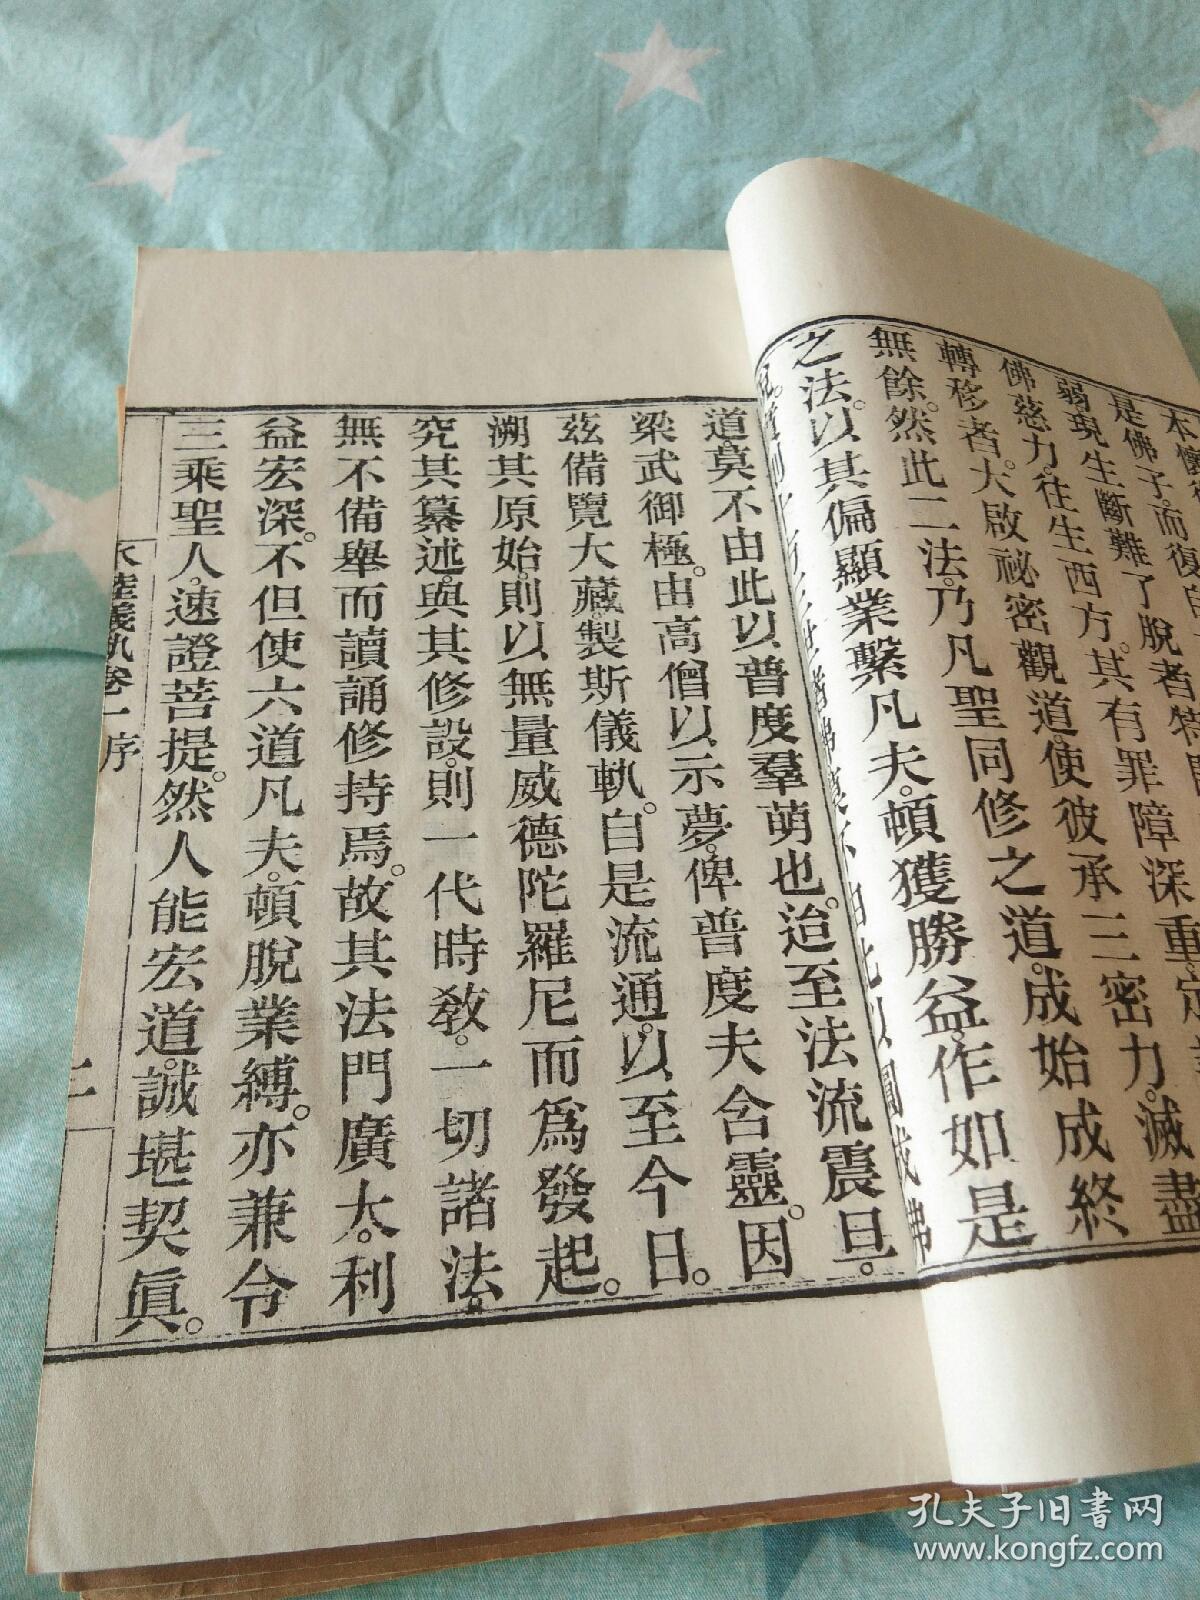 是佛子而復
弱現生斷難了脫者特
佛慈力往生西方其有罪障深重
轉移者大啟祕密觀道使彼承三密力滅盡
無餘然此二法乃凡聖同修之道成始成終
之法以其偏顯業繫凡夫頓獲勝益作如是
道莫不由此以普度羣萌也迨至法流震旦
梁武御極由高僧以示夢俾普度夫含靈因
茲備覽大藏製斯儀軌自是流通以至今日
溯其原始則以無量威德陀羅尼而為發起
究其纂述與其修設則一代時教一切諸法
無不備舉而讀誦修持焉故其法門廣大利
益宏深不但使六道凡夫頓脫業縛亦兼令
三乘聖人速證菩提然人能宏道誠堪契眞
水陸儀軌卷一序
二
孔夫子旧书网
www.kongfz.com